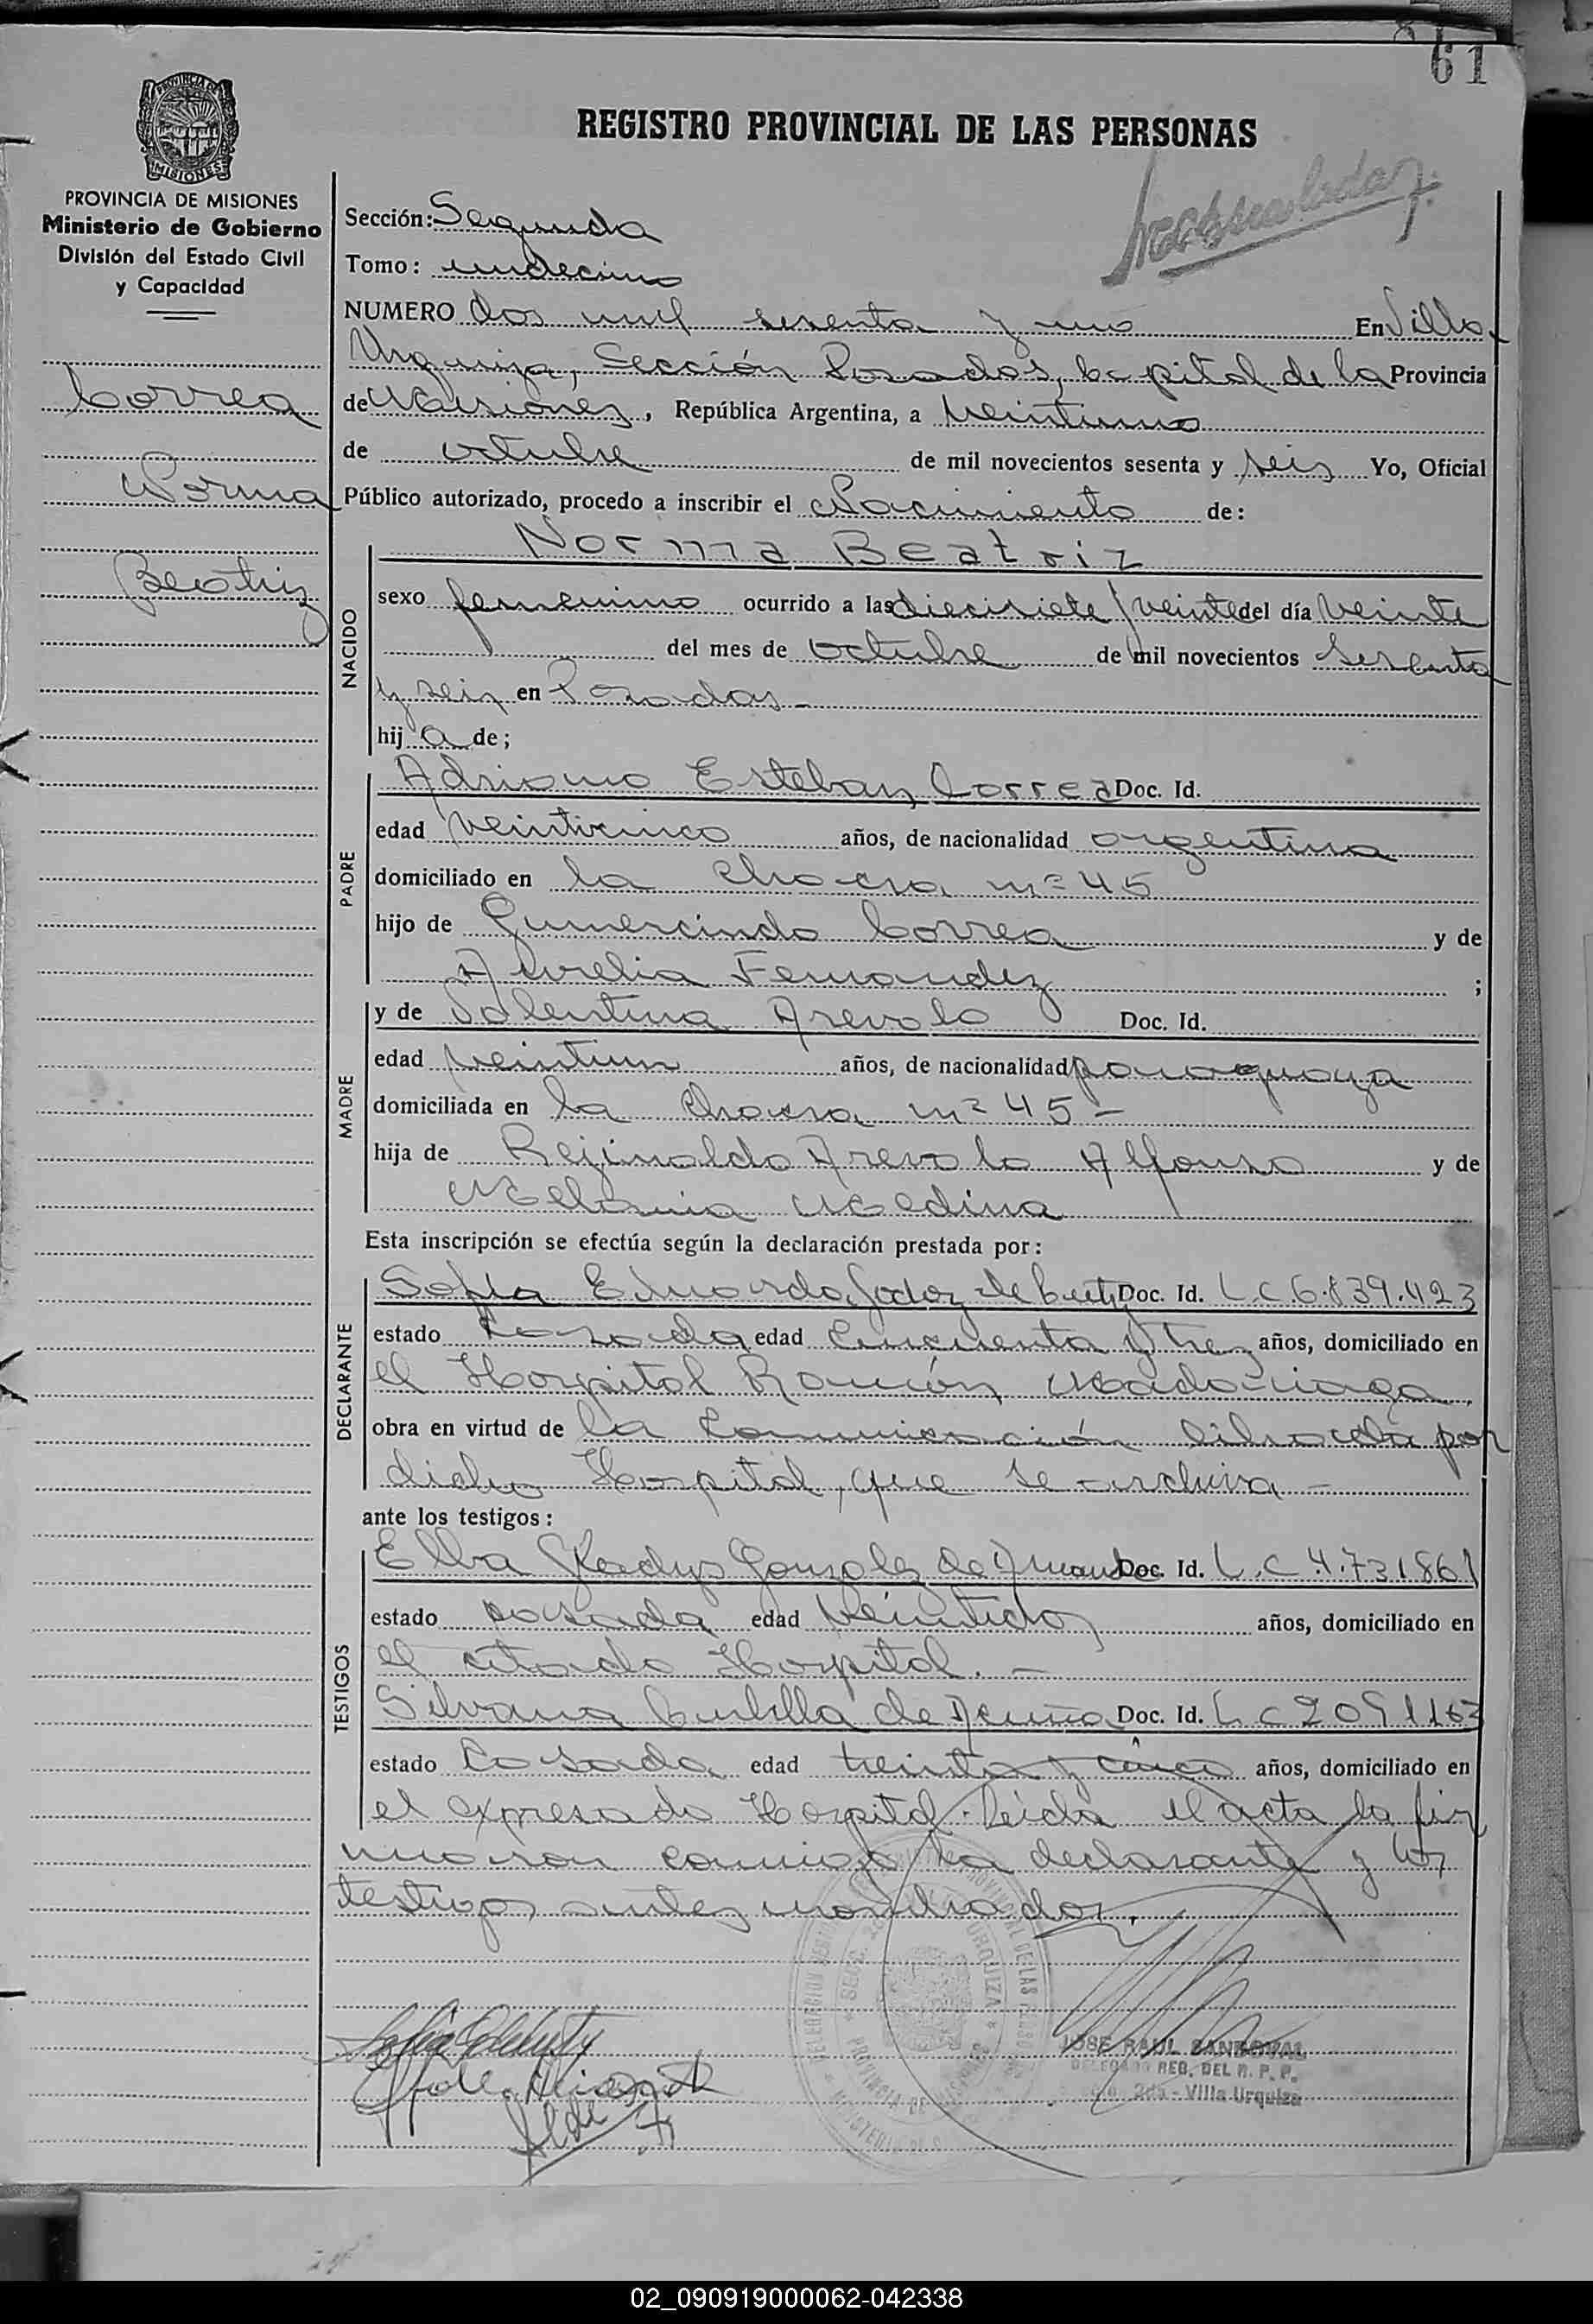 61
REGISTRO PROVINCIAL DE LAS PERSONAS
PROVINCIA DE MISIONES
Ministerio de Gobierno
División del Estado Civil
y Capacidad
Correa
Norma
Beatriz
Sección: Segunda
Tomo: undecimo
NUMERO dos mil sesenta y uno En Villa
Urquiza, Sección Posadas, Capital de la Provincia
de Misiones, República Argentina, a veintiuno
de octubre de mil novecientos sesenta y seis Yo, Oficial
Público autorizado, procedo a inscribir el Nacimiento de:
NACIDO
Norma Beatriz
sexo femenino ocurrido a las diecisiete / veinte del día veinte
del mes de octubre de mil novecientos sesenta
y seis en Posadas -
hij a de;
PADRE
Adriano Esteban Correa Doc. Id.
edad veinticinco años, de nacionalidad argentina
domiciliado en la Chacra nº 45
hijo de Gumercindo Correa y de
Aurelia Fernandez ;
MADRE
y de Valentina Arevalo Doc. Id.
edad veintiun años, de nacionalidad paraguaya
domiciliada en la Chacra nº 45 -
hija de Rejinaldo Arevalo Alfonso y de
Melania Medina
Esta inscripción se efectúa según la declaración prestada por:
DECLARANTE
Sofia Eduarda Godoy de Doc. Id. L.C 6.839.423
estado Casada edad cincuenta y tres años, domiciliado en
el Hospital Ramón Madariaga,
obra en virtud de la Comunicación librada por
dicho Hospital, que se archiva -
ante los testigos:
TESTIGOS
Elba Gladys Gonzalez de Doc. Id. L.C 4.731861
estado casada edad veintidos años, domiciliado en
el citado Hospital. -
Silvana de Acuña Doc. Id. L C 2091163
estado Casada edad treinta y cinco años, domiciliado en
el expresado Hospital. Leida el acta la fir
maron conmigo la declarante y los
testigos antes nombrados.
JOSE RAUL SANDOVAL
DELEGADO REG. DEL R. P. P.
2da - Villa Urquiza
02_090919000062-042338